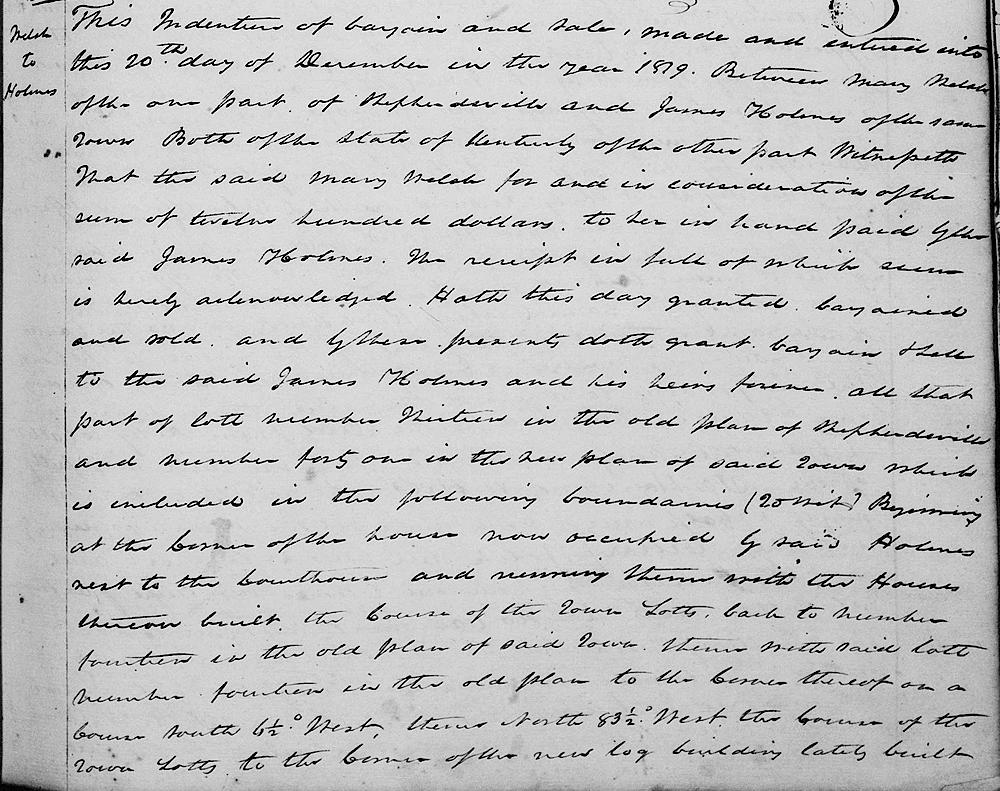 Welsh
to
Holmes
This Indenture of bargain and sale, made and entered into
this 20th day of December in the year 1819. Between Mary Welsh
of the one part, of Shepherdsville and James Holmes of the same
Town Both of the State of Kentucky of the other part Witnesseth
That the said Mary Welsh for and in consideration of the
sum of twelve hundred dollars. to her in hand paid by the
said James Holmes. The receipt in full of which sum
is hereby acknowledged. Hath this day granted. bargained
and sold. and by these presents doth grant. bargain & sell
to the said James Holmes and his heirs forever. all that
part of lott number Thirteen in the old plan of Shepherdsville
and number forty one in the new plan of said Town which
is included in the following boundaries (To Wit) Beginning
at the Corner of the house now occupied by said Holmes
next to the Courthouse and running thence with the Houses
thereon built. the Course of the Town Lotts. back to number
fourteen in the old plan of said Town. thence with said lott
number fourteen in the old plan to the Corner thereof on a
Course South 6½° West, thence North 83½° West the Course of the
Town Lotts to the Corner of the new log building lately built